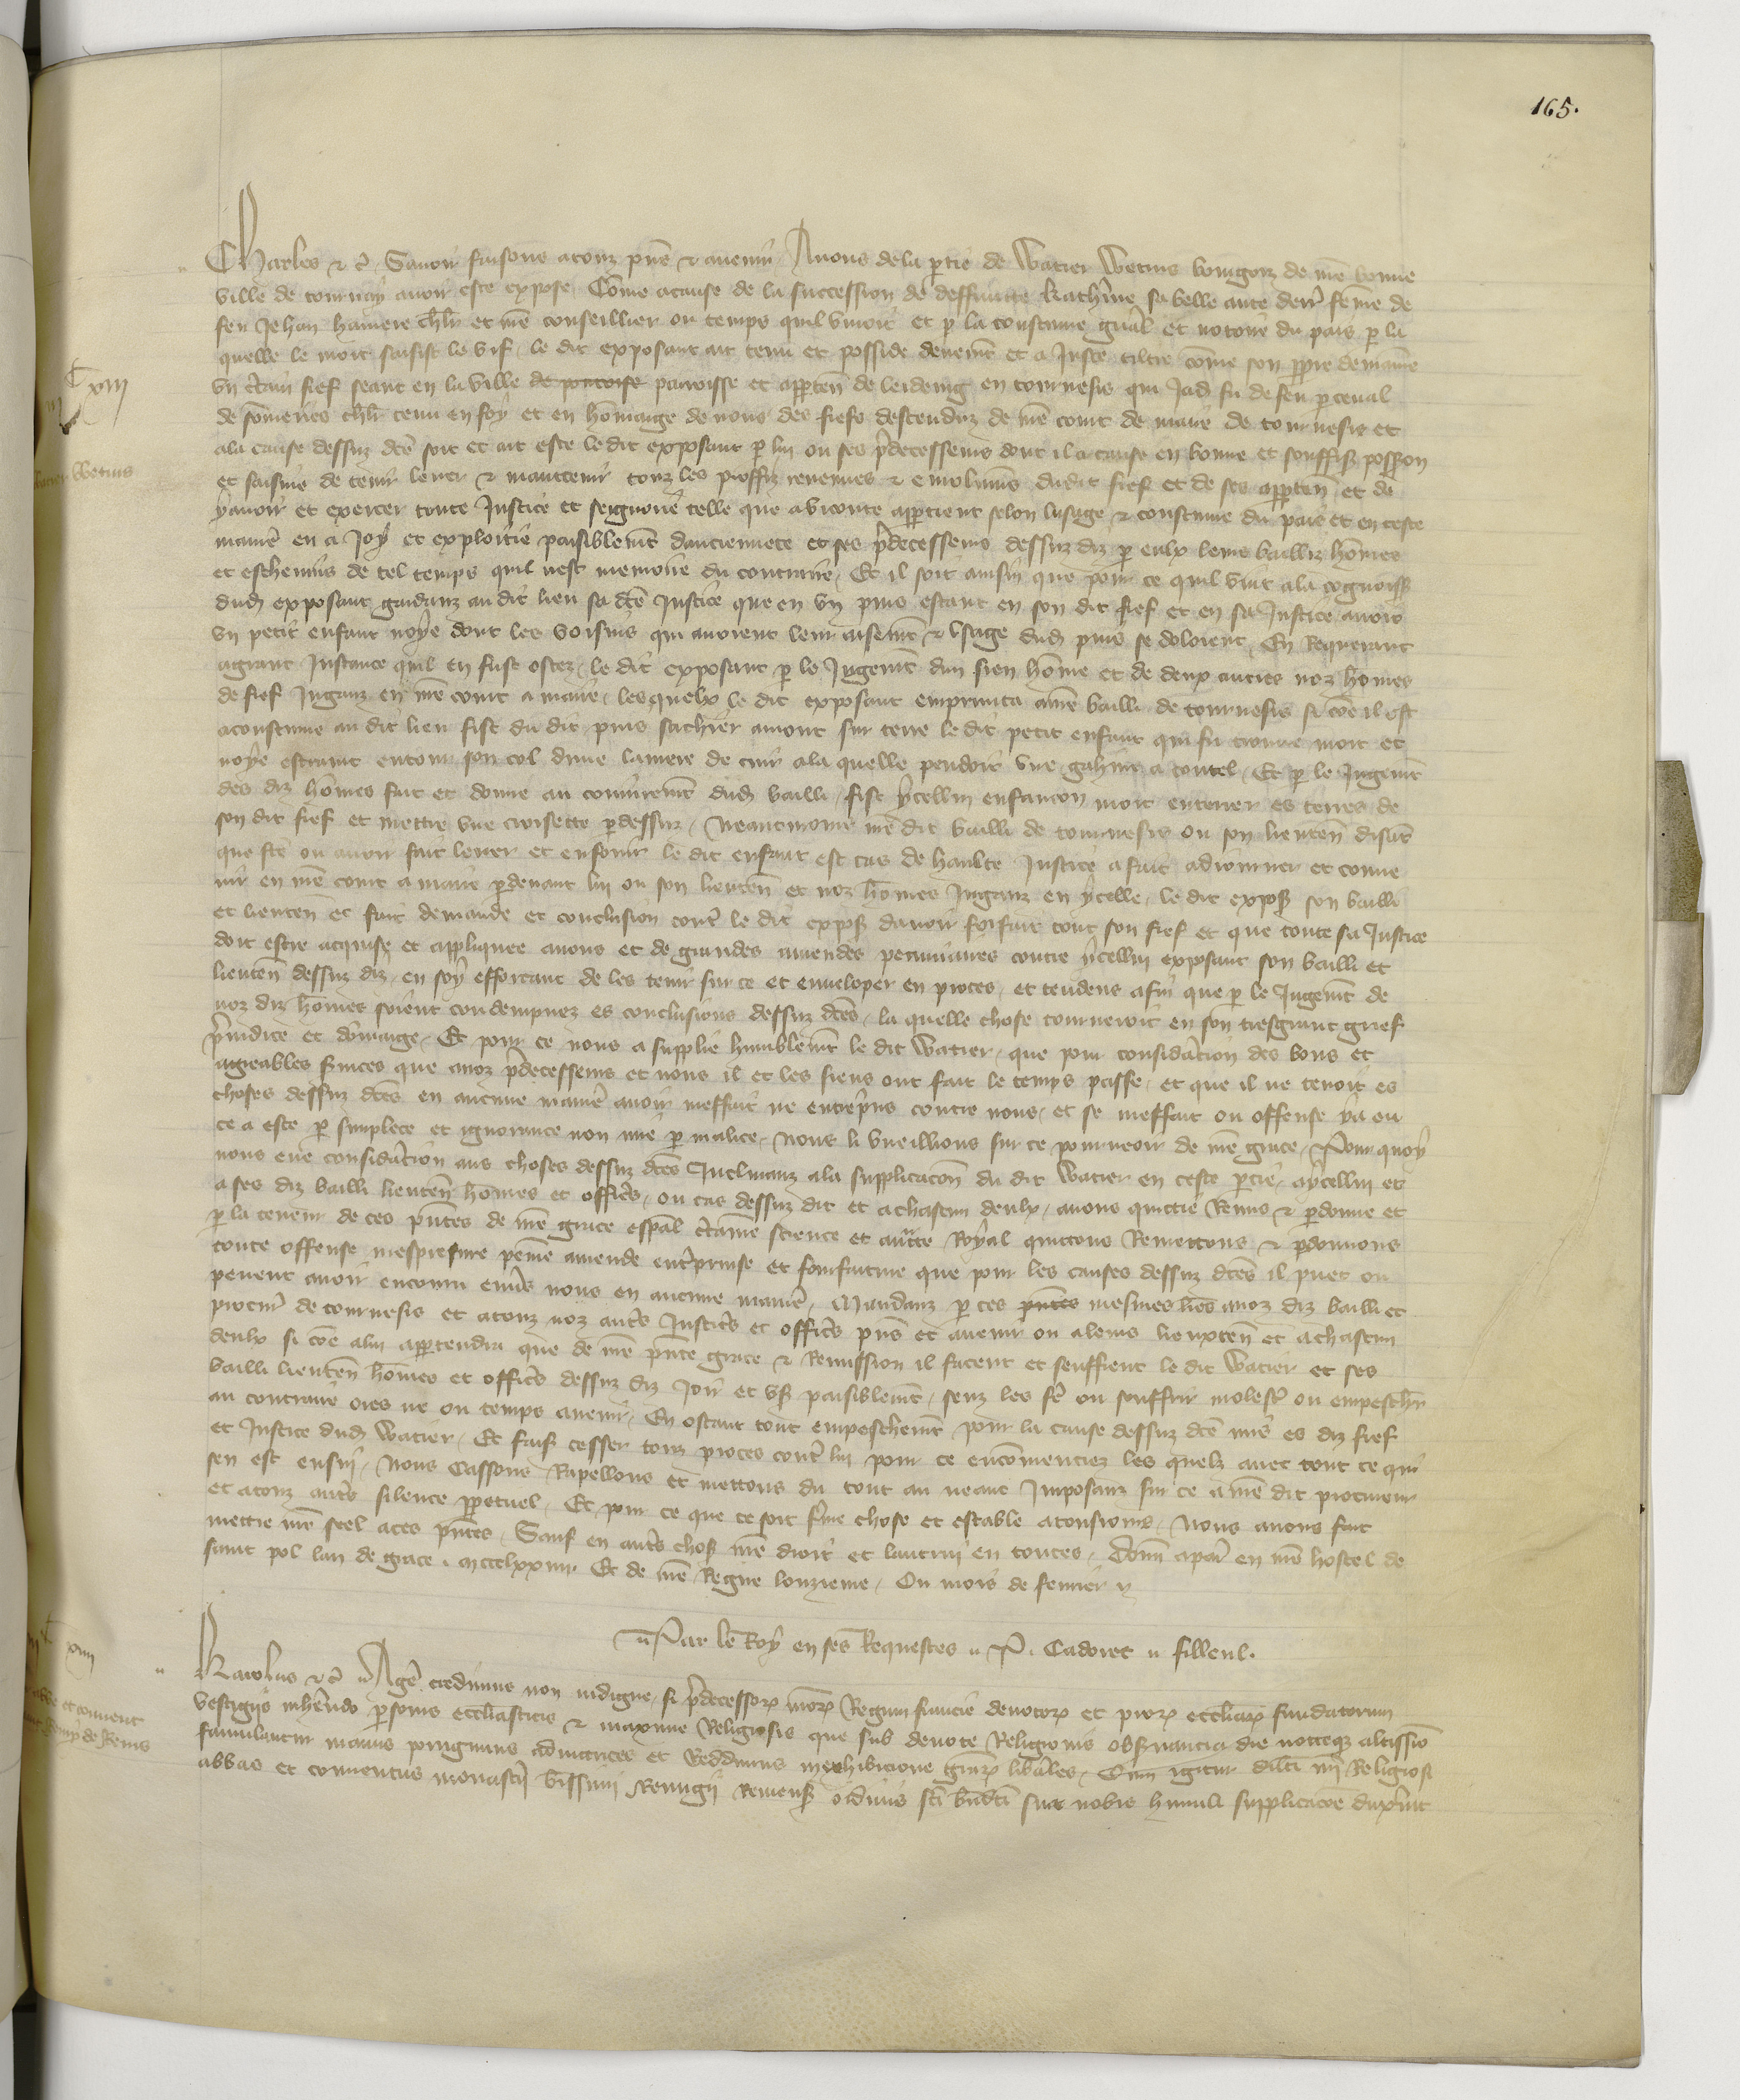 165.
Charles &c̃. Sauoir faisons a touz pñs & auenir. A nous de la ptie de Watier Wettins bourgois de nr̃e bonne
ville de tournay auoir este expose. Cõme a cause de la succession de deffuncte Kath'ine sa belle ante derr̃ fẽme de
feu Jehan haniere chl̃r et nr̃e conseillier ou temps quil viuoit et p la coustume gñal et notoire du pais p la
quelle le mort saisist le vif. le dit exposant ait tenu et posside deuemt et a Juste tiltre cõme son ppre demaine
vn c̃tain fief seant en la ville de pontoise parroisse et apptẽn de leideing en tournesis qui Jad fu de feu pceual
de sõmeries chl̃r tenu en foy et en hõmaige de nous des fiefs descenduz de nr̃e court de maire de tournesis et
a la cause dessuz dc̃e soit et ait este le dit exposant p lui ou ses p̃decesseurs dont il a cause en bonne et souffiss possion
et saisine de tenir leuer & maintenir touz les proffiz reuenues & emolumẽs dudit fief et de ses apptẽn et de
y auoir et exercer toute Justice et seignorie telle que a viconte appartient selon lusage & coustume du pais et en ceste
maniẽ en a Joy et exploitie paisiblemt danciennete et ses p̃decesseurs dessuz diz p eulx leurs bailliz hõmes
et escheuins de tel temps quil nest memoire du contraire. Et il soit ainsin que pour ce quil vint a la cognoiss
dud exposant gardanz au dit lieu sa dc̃e Justice que en vn puis estant en son dit fief et en sa Justice auoit
vn petit enfant noye dont les voisins qui auoient leur aisemt & vsage dud puis se doloient. En Requerant
a grant Instance quil en fust ostez. le dit exposant p le Jugemt dun sien hõme et de deux autres noz hõmes
de fief Juganz en nr̃e court a maire. lesquelx le dit exposant emprunta a nr̃e bailli de tournesis si cõe il est
acoustume au dit lieu fist du dit puis sachier amont sur terre le dit petit enfant qui fu trouue mort et
noye estraint entour son col dune laniere de cuir a la quelle pendoit vne gahine a coutel. Et p le Jugemt
des diz hõmes fait et donne au coniuremt dud bailli. fist ycellui enfancon mort enterrer es terres de
son dit fief et mettre vne croisette p dessuz. Neantmoins nr̃e dit bailli de tournesis ou son lieutẽn disãt
que fẽ ou auoir fait leuer et enfouir le dit enfant est cas de haulte Justice a fait adiourner et conue
nir en nr̃e court a maire p deuant lui ou son lieutẽn et noz hõmes Jugans en ycelle. le dit exposs son bailli
et lieutẽn et fait demande et conclusion contr̃ le dit exposs dauoir forfait tout son fief et que toute sa Justice
doit estre acquise et appliquee a nous et de grandes amendes pecuniaires contre ycellui exposant son bailli et
lieutẽn dessuz diz. en soy efforcant de les tenir sur ce et enueloper en proces. et tendens afin que p le Jugemt de
noz diz hõmes soient condempnez es conclusions dessuz dc̃es. la quelle chose tourneroit en son tresgrant grief
p̃iudice et dõmaige. Et pour ce nous a supplie humblemt le dit Watier. que pour considãcion des bons et
aggreables s̃uices que a noz p̃decesseurs et nous il et les siens ont fait le temps passe. et que il ne tenoit es
choses dessuz dc̃es en aucune maniẽ auoir meffait ne entrep̃ns contre nous. et se meffait ou offense y a eu
ce a este p simplece et ignorance non mie p malice. Nous li vueillions sur ce pourueoir de nr̃e grace. Pour quoy
nous eue considãcion aus choses dessuz dc̃es Inclinanz a la supplicacõn du dit Watier en ceste ptie. a ycellui et
a ses diz bailli lieutẽn hõmes et offic̃s. ou cas dessuz dit et a chascun deulx. auons quictie Remis & pdonne et
p la teneur de ces pñtes de nr̃e grace esp̃al c̃taine science et auc̃te Royal quictons Remettons & pdonnons
toute offense mespresure peine amende ent̃prinse et forfaiture que pour les causes dessuz dc̃es il puet ou
peuent auoir encouru enũs nous en aucune maniẽ. Mandanz p ces pñtes mesmes lr̃es a noz diz bailli et
procur̃ de tournesis et a touz noz aut̃s Justic̃s et offic̃s pñs et auenir ou a leurs lieuxtẽn et a chascun
deulx si cõe a lui apptendra que de nr̃e pñte grace & Remission il facent et seuffrent le dit Watier et ses
bailli lieutẽn hõmes et offic̃s dessuz diz Joir et vss paisiblemt. senz les fẽ ou souffrir molest̃ ou empesch̃r
au contraire ores ne ou temps auenir. En ostant tout empeschemt pour la cause dessuz dc̃e mis es diz fief
et Justice dud Watier. Et faiss cesser touz proces contr̃ lui pour ce encõmenciez les quelz auec tout ce qui
sen est ensui. Nous Cassons Rapellons et mettons du tout au neant Imposanz sur ce a nr̃e dit procureur
et a touz aut̃s silence ppetuel. Et pour ce que ce soit ferme chose et estable a tousiours. Nous auons fait
mettre nr̃e seel a ces pñtes. Sauf en aut̃s choss nr̃e droit et lautrui en toutes. Donñ a paris en nr̃e hostel de
saint pol lan de grace. mccclxxiiii. Et de nr̃e Regne lonzieme. Ou mois de feurier
Par le Roy en ses Requestes. P. Cadoret. filleul.
Karolus &c̃. Agẽ credimus non indigne. si p̃decessor nror Regum francie deuotor et pior eccliar fundatorum
vestigiis inherendo psonis eccl̃iasticis & maxime Religiosis que sub deuote Religionis obs̃uancia die nocteqz altissimo
famulantur manus porrigimus adiutrices et Reddimus in exhibicione gr̃ar lib̃ales. Cum igitur dilc̃i nr̃i Religiosi
abbas et conuentus monast̃ij b̃issimi Remigij Remenss ordinis sc̃i bñdc̃i sua nobis humili supplicacõe dux̃int
Cxiii
Watier Wettins
xiiii
et conuent
de Reins